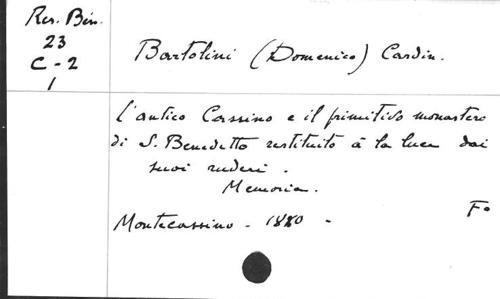 Res. Ben.
23
C - 2
1
Bartolini (Domenico) Cardin.
L'antico Cassino e il primitivo monastero
di S. Benedetto restituito à la luce dai
suoi ruderi.
Memoria.
Fº
Montecassino - 1880 -